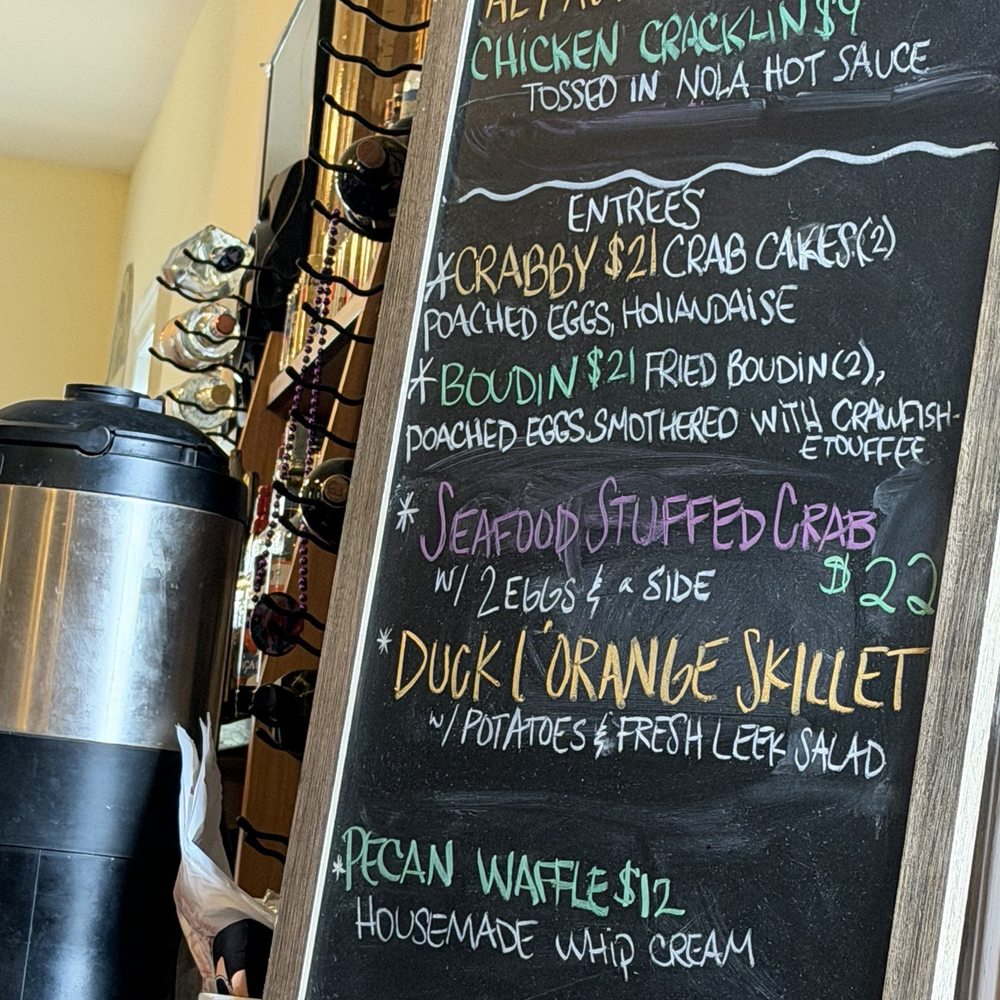 CHICKEN CRACKLIN $9
TOSSED IN NOLA HOT SAUCE
ENTREES
*CRABBY $21 CRAB CAKES(2)
POACHED EGGS, HOllANDAiSE
*BOUDIN $21 FRIED BOUDIN(2),
POACHED EGGS, SMOTHERED WITH CRAWFISH
ETOUFFEE
*SEAFOOD STUFFED CRAB
W/ 2 EGGS & a SIDE $22
*DUCK l'ORANGE SKILLET
W/ POTATOES & FRESH LEEK SALAD
*PECAN WAFFLE $12
HOUSEMADE WHIP CREAM